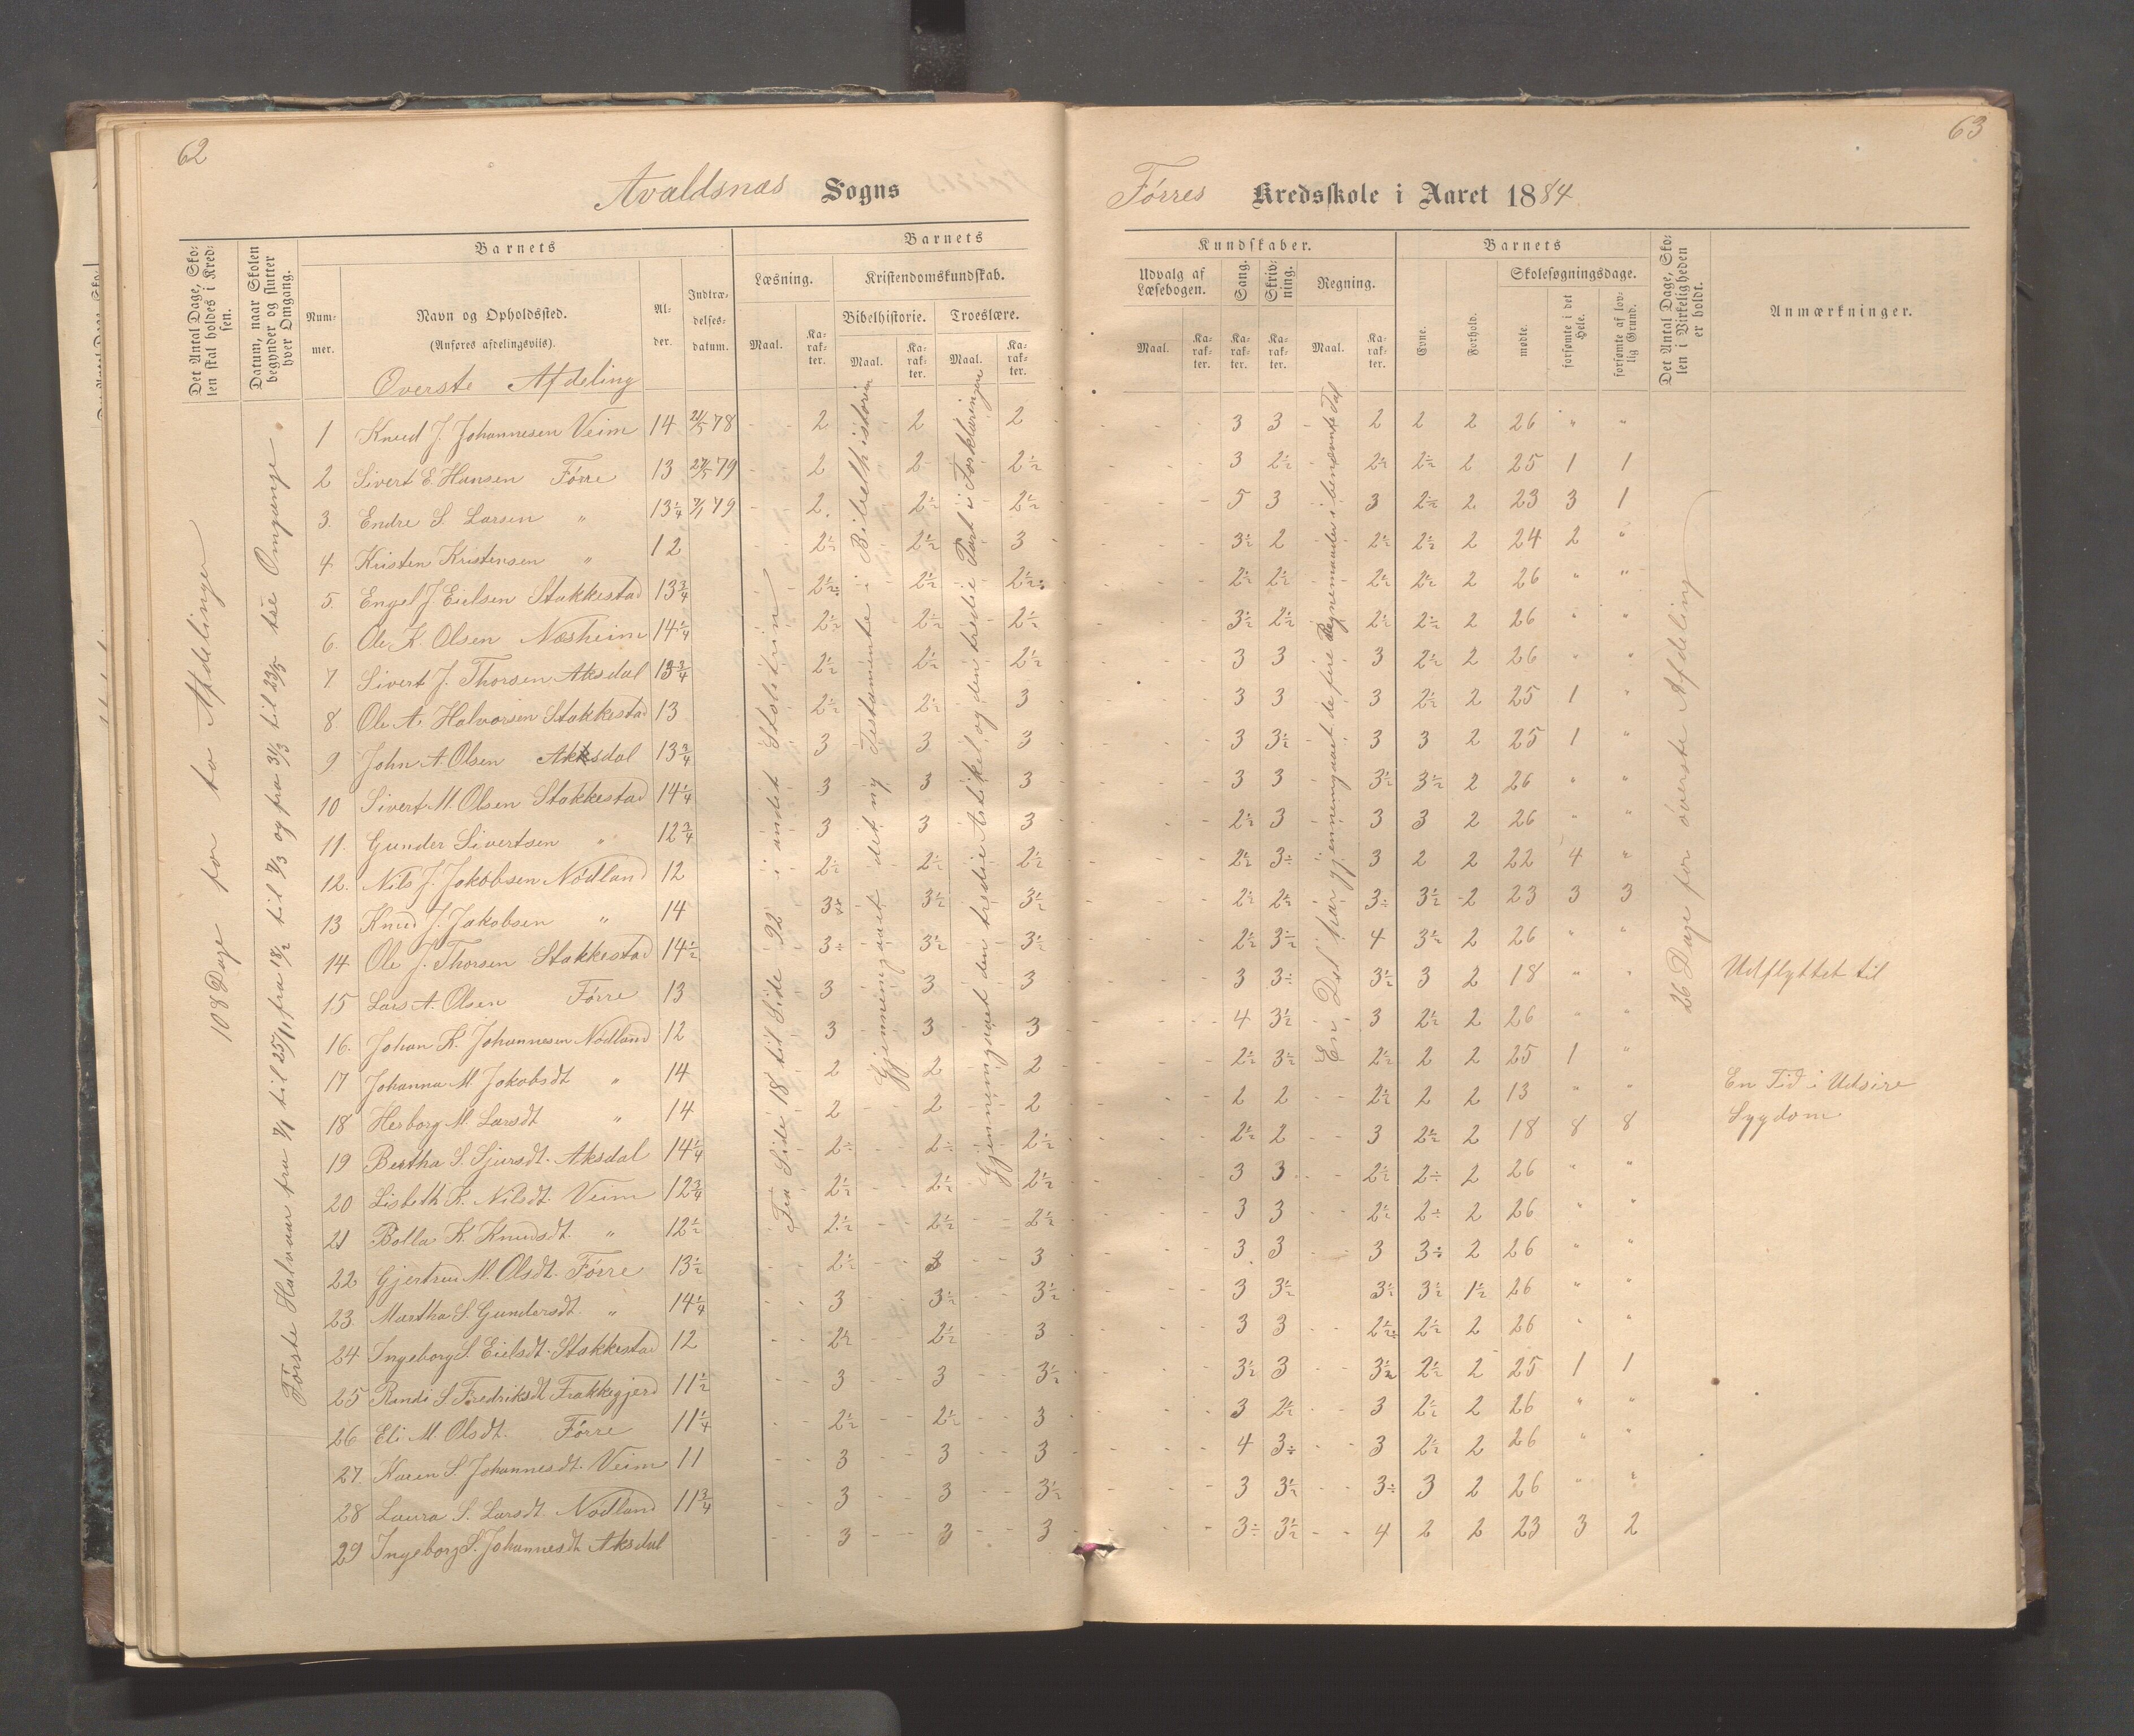 62
Avaldsnæs Sogns
Det Antal Dage, Sko-
len skal holdes i Kred-
sen.
Datum, naar Skolen
begynder og slutter
hver Omgang.
Barnets
Num-
mer.
Navn og Opholdssted.
(Anføres afdelingsvis).
Al-
der.
Indtræ-
delses-
datum.
Barnets
Læsning.
Maal.
Ka-
rak-
ter.
Kristendomskundskab.
Bibelhistorie.
Maal.
Ka-
rak-
ter.
Troeslære.
Maal.
Ka-
rak-
ter.
Øverste Afdeling
108 Dage for to Afdelinger
Første Halvaar fra 7/1 til 25/1, fra 18/2 til 7/3 og fra 31/3 til 23/5 tre Omgange.
Fra Side 18 til Side 92 i andet Skoletrin
Gjennemgaaet det ny Testamente i Bibelhistorien
Gjennemgaaet den tredie Artikel og den tredie Part i Forklaringen
1 Knud J. Johannesen Veim 14 21/5 78 2 2 2
2 Sivert E. Hansen Førre 13 27/5 79 2 2 2½
3. Endre S. Larsen " 13¼ 7/1 79 2. 2½ 2½
4. Kristen Kristensen " 12 2½ 2½ 3
5. Engel J. Eielsen Stakkestad 13¾ 2½ 2½ 2½
6. Ole K. Olsen Næsheim 14¼ 2½ 2½ 2½
7. Sivert J. Thorsen Aksdal 13¾ 2½ 2½ 2½
8. Ole A. Halvorsen Stakkestad 13 2½ 2½ 3
9 John A. Olsen Aksdal 13¾ 3 3 3
10 Sivert M. Olsen Stakkestad 14¼ 3 3 3
11. Gunder Sivertsen " 12¾ 3 3 3
12. Nils J. Jakobsen Nødland 12 2½ 2½ 2½
13 Knud J. Jakobsen " 14 3½ 3½ 3½
14 Ole J. Thorsen Stakkestad 14½ 3÷ 3½ 3½
15 Lars A. Olsen Førre 13 3 3 3
16. Johan K. Johannesen Nødland 12 3 3 3
17 Johanna M. Jakobsdt " 14 2 2 2
18 Herborg M. Larsdt " 14 2 2 2
19 Bertha S. Sjursdt. Aksdal 14¼ 2÷ 2÷ 2½
20 Lisbeth K. Nilsdt. Veim 12¾ 2½ 2½ 2½
21 Bolla K. Knudsdt. " 12½ 2½ 2½ 2½
22 Gjertrud M. Olsdt. Førre 13½ 2½ 3 3
23. Martha S. Gundersdt. " 14¼ 3 3½ 3½
24 Ingeborg S. Eielsdt. Stakkestad 12 2½ 2½ 3
25 Randi S. Fredriksdt Frakkegjerd 11½ 3 3 3½
26 Eli M. Olsdt. Førre 11¼ 2½ 2½ 3
27. Karen S. Johannesdt. Veim 11 3 3 3
28 Laura S. Larsdt. Nødland 11¾ 3 3 3½
29 Ingeborg S. Johannesdt Aksdal 3 3 3
63
Førres Kredsskole i Aaret 1884.
Kundskaber.
Udvalg af
Læsebogen.
Maal.
Ka-
rak-
ter.
Sang.
Ka-
rak-
ter.
Skriv-
ning.
Ka-
rak-
ter.
Regning.
Maal.
Ka-
rak-
ter.
Barnets
Evne.
Forhold.
Skolesøgningsdage.
mødte.
forsømte i det
Hele.
forsømte af lov-
lig Grund.
Det Antal Dage, Sko-
len i Virkeligheden
er holdt.
Anmærkninger.
En Del har gjennemgaaet de fire Regnemaader i benævnte Tal
26 Dage for øverste Afdeling
3 3 2 2 2 26 " "
3 2½ 2½ 2½ 2 25 1 1
5 3 3 2½ 2 23 3 1
3½ 2 2½ 2½ 2 24 2 "
2½ 2½ 2½ 2½ 2 26 " "
3½ 2½ 2½ 2½ 2 26 " "
3 3 3 2½ 2 26 " "
3 3 3 2½ 2 25 1 "
3 3½ 3 3 2 25 1 "
3 3 3½ 3½ 2 26 " "
2½ 3 3 3 2 26 " "
2½ 3÷ 3 2 2 22 4 "
2½ 2½ 3÷ 3½ 2 23 3 3
2½ 3½ 4 3½ 2 26 " "
3 3÷ 3½ 3 2 18 " " Udflyttet til
4 3½ 3 2½ 2 26 " "
2½ 3½ 2½ 2 2 25 1 "
2 2 2½ 2 2 13 " " En Tid i Udsire
2½ 2 3 2½ 2 18 8 8 Sygdom
3 3 2½ 2÷ 2 26 " "
3 3 2½ 2÷ 2 26 " "
3 3 3 3÷ 2 26 " "
3 3½ 3½ 3½ 1½ 26 " "
3 3 2½ 2½ 2 26 " "
3½ 3 3½ 2½ 2 25 1 1
3 2½ 3 2½ 2 26 " "
4 3÷ 3 2½ 2 26 " "
3 3½ 3÷ 3 2 26 " "
3÷ 3½ 4 2 2 23 3 2